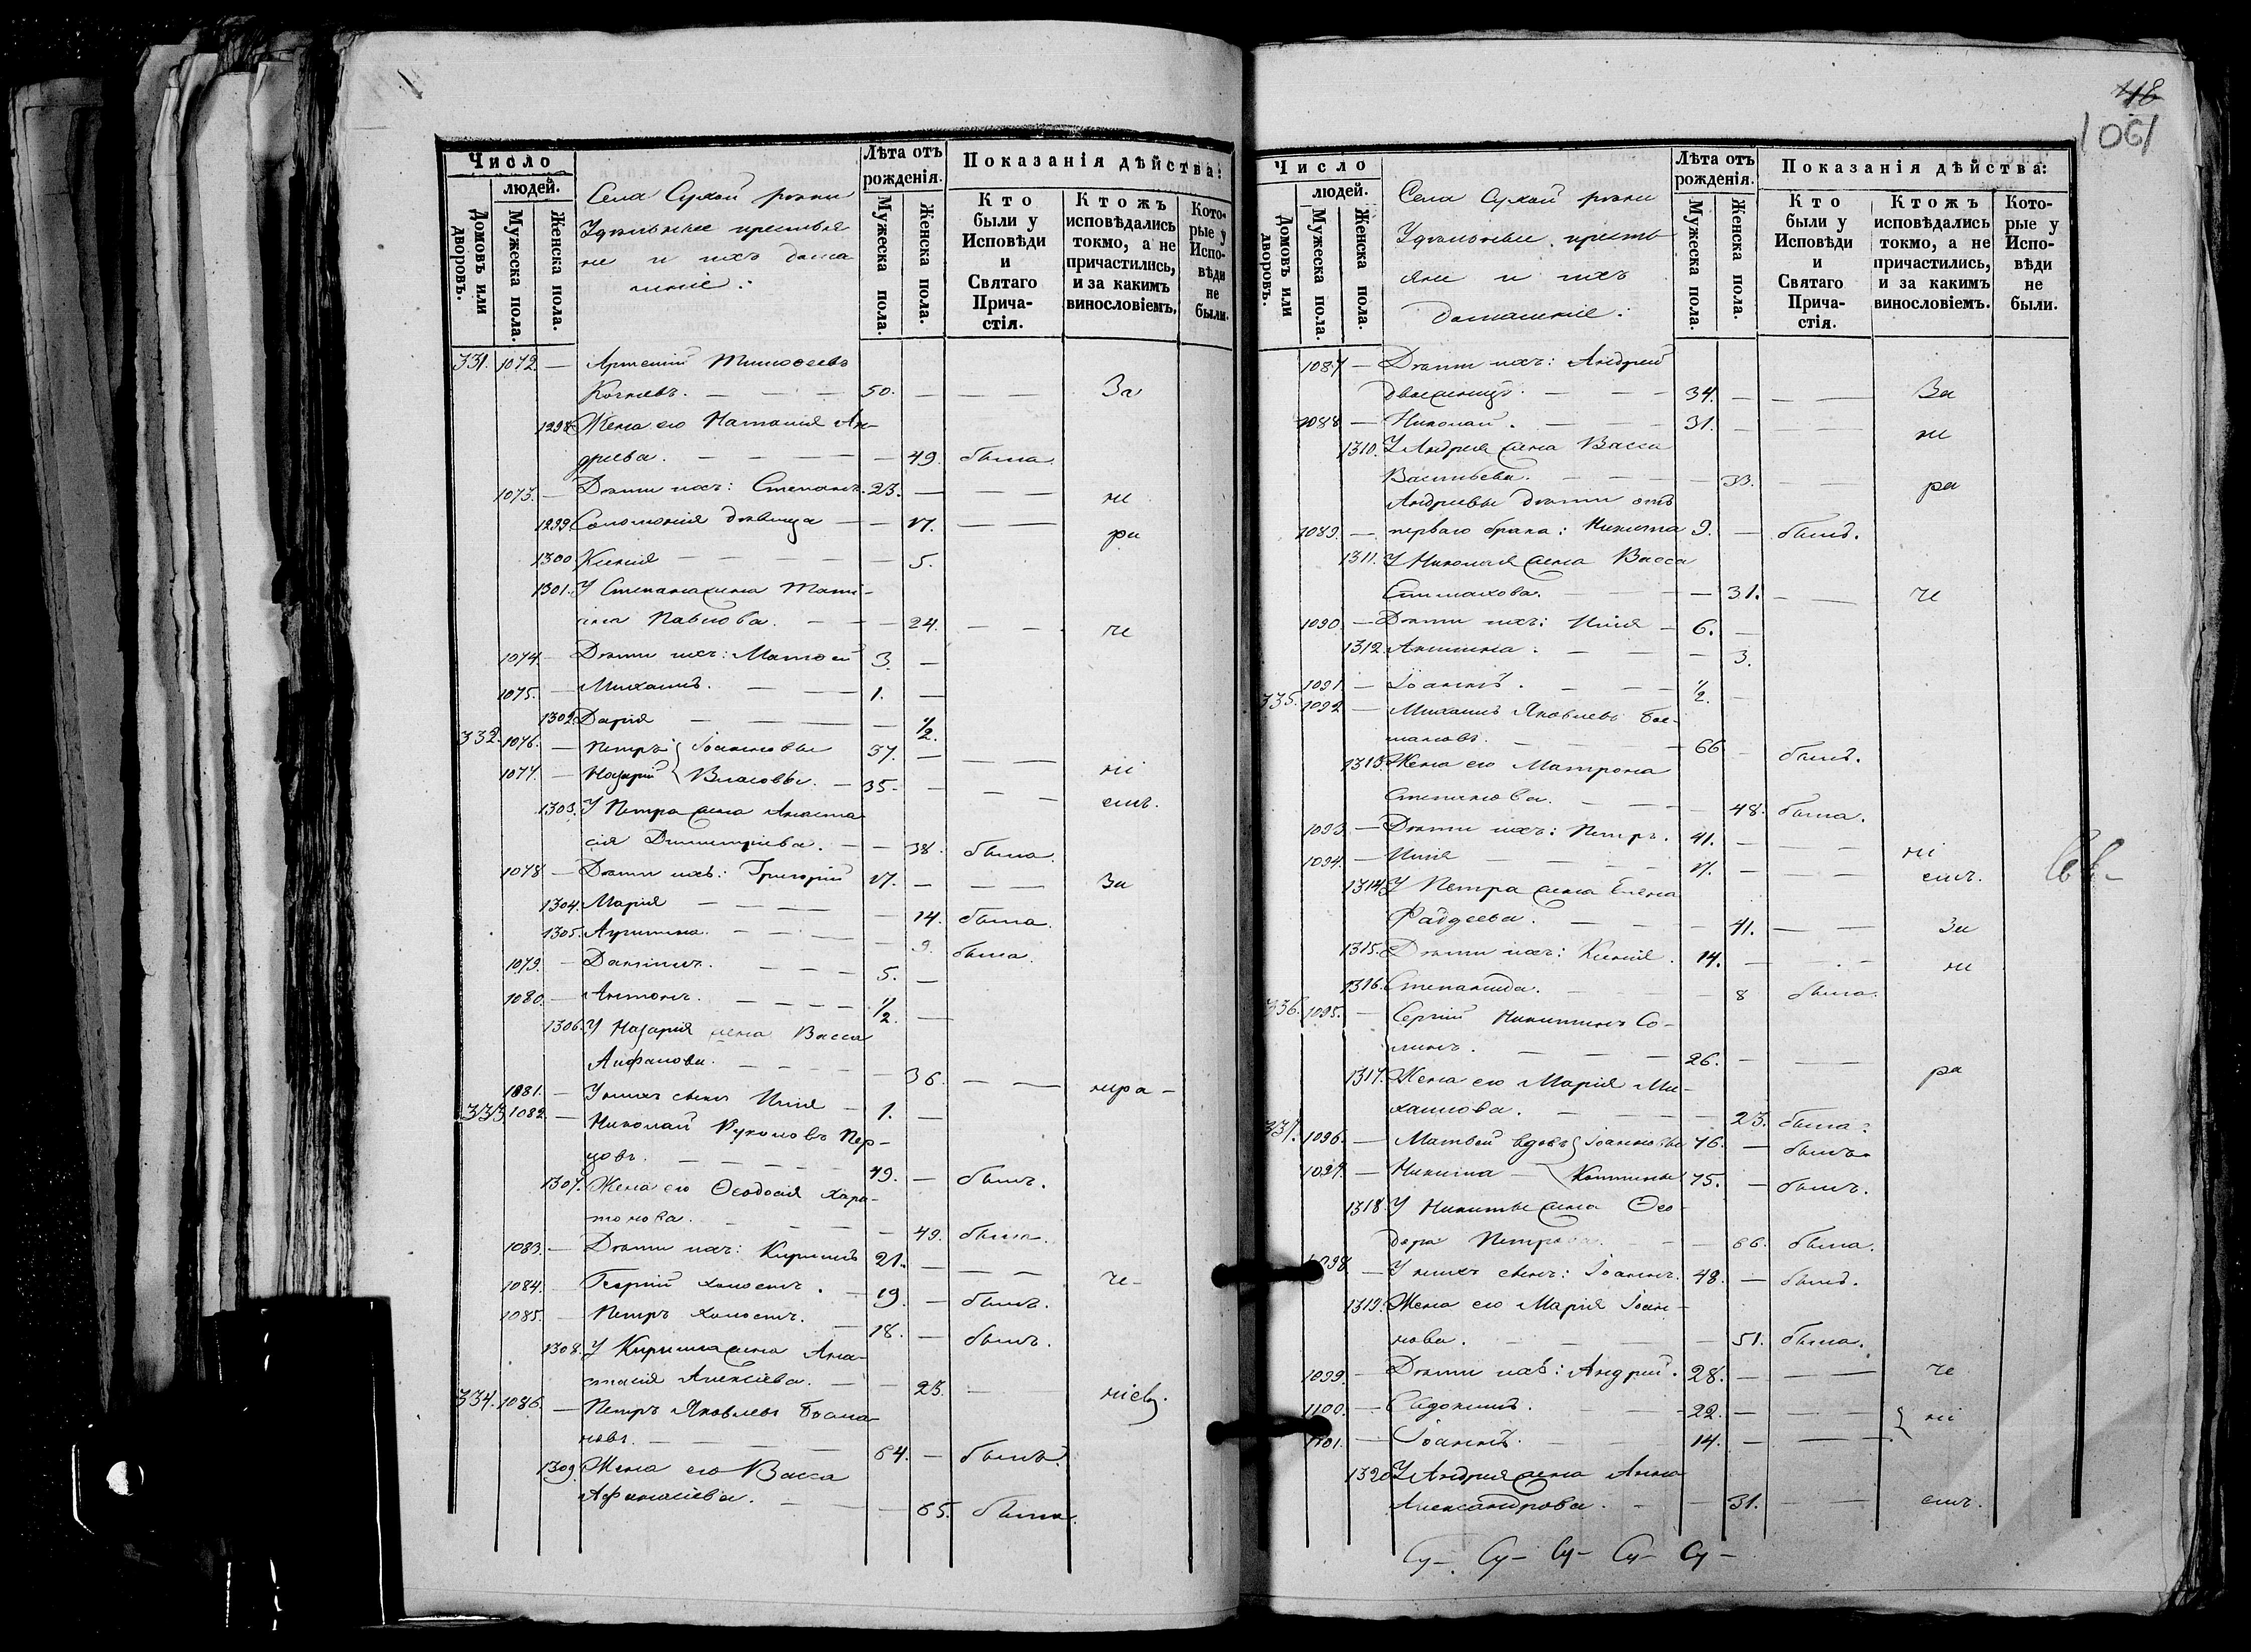 Число
людей.
Домовъ или дворовъ.
Мужеска пола.
Женска пола.
Села Сухой рѣчки
Удѣльные крестья
не и ихъ дома
шніе:
Лѣта отъ рожденія.
Мужеска пола.
Женска пола.
Показанія дѣйства:
Кто были у Исповѣди и Святаго Прича-стія.
Ктожъ исповѣдались токмо, а не причастились, и за какимъ винословіемъ.
Кото-рые у Испо-вѣди не были.
331. 1072. — Артемій Тимоѳеевъ
50. — — — За
1298. Жена его Наталія Ан-
дреева. — — 49. была.
1073. — Дѣти ихъ: Степанъ. 23. — — — не
1299. Соломонія дѣвица — — 17. — — ра
1300. Ксенія — — — 5.
1301. У Степана жена Тати-
яна Павлова. — — 24. — — че
1074. — Дѣти ихъ: Матѳей 3. —
1075. — Михаилъ. — — 1. —
1302. Дарія — — — 1/2.
332. 1076. — Петръ Іоанновы 57. — — — ні
1077. — Назарій Власовы. — 35 — — — емъ.
1303. У Петра жена Анаста
сія Димитріева. — — 38. была.
1078. — Дѣти ихъ: Григорій 17. — — — За
1304. Марія — — — 14. была.
1305. Акулина. — — — 9. была.
1079. — Даніилъ. — — — 5. —
1080. — Антонъ. — — — 1/2. —
1306. У Назарія жена Васса
— — — 36. — — нера-
1081. — У нихъ сынъ Илія — 1. —
333. 1082. — Николай
49. — былъ.
1307. Жена его Ѳеодосія Хари-
тонова. — — — 49. была.
1083. — Дѣти ихъ: Кириллъ 21. — — — че-
1084. — Георгій холостъ. — 19. — былъ.
1085. — Петръ холостъ. — 18. — былъ.
1308. У Кирилла жена Ана-
стасія Алексіева. — — 23. —
334. 1086. — Петръ Яковлевъ
новъ. — — — 64. — былъ.
1309. Жена его Васса
Афанасіева. — — 65. была.
1061
Число
людей.
Домовъ или дворовъ.
Мужеска пола.
Женска пола.
Села Сухой рѣчки
Удѣльные кресть
яне и ихъ
домашніе:
Лѣта отъ рожденія.
Мужеска пола.
Женска пола.
Показанія дѣйства:
Кто были у Исповѣди и Святаго Прича-стія.
Ктожъ исповѣдались токмо, а не причастились, и за какимъ винословіемъ.
Кото-рые у Испо-вѣди не были.
1087. — Дѣти ихъ: Андрей
двоеженецъ. — — — 34. — — — За
1088. — Николай. — — — 31. — — — не
1310. У Андрея жена Васса
Васильева. — — — 33. — — ра
Андреевы дѣти отъ
1089. — перваго брака: Никита 9. — былъ.
1311. У Николая жена Васса
— — — 31. — — че
1090. — Дѣти ихъ: Илія — 6. —
1312. Акилина. — — — 3.
1091. — Іоаннъ. — — — 1/2. —
335. 1092. — Михаилъ Яковлевъ
66 — былъ.
1313. Жена его Матрона
Степанова. — — — 48. была.
1093. — Дѣти ихъ: Петръ. 41. — — — ні
1094. — Илія — — — 17. — — — емъ.
1314. У Петра жена Елена
Фаддеева. — — — 41. — — За
1315. Дѣти ихъ: Ксенія. 14. — — не
1316. Степанида. — — — 8 была.
336. 1095. — Сергій Никитинъ Со-
— — — 26. — — — ра
1317. Жена его Марія Ми-
хаилова. — — — 23. была.
337. 1096. — Матвей вдовъ Іоанновы 76. — былъ.
1097. — Никита — 75. — былъ.
1318. У Никиты жена Ѳео-
дора Петрова. — — 66. была.
1098. — У нихъ сынъ: Іоаннъ. 48. — былъ.
1319. Жена его Марія Іоан-
нова. — — — 51. была.
1099. — Дѣти ихъ: Андрей. 28. — — — че
1100. — Евдокимъ. — — — 22. — — — ні
1101. — Іоаннъ. — — — 14. — — —
1320. У Андрея жена Анна
Александрова. — — 31. — — емъ.